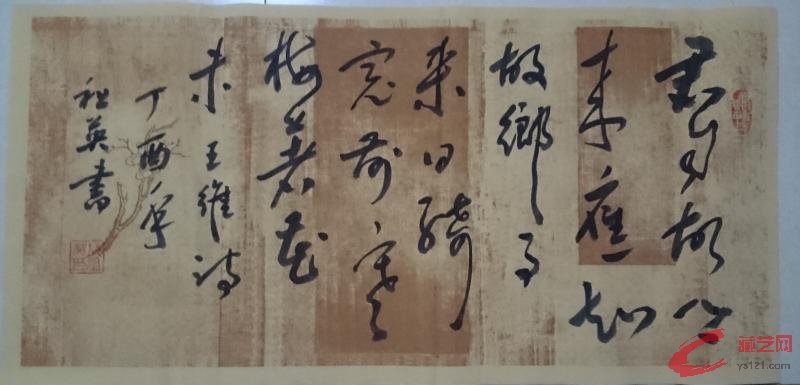 君自故鄉
来應知
故鄉事
来日綺
窓前寒
梅著花
未 王維诗
丁酉年
祖英書
藏艺网
ys121.com